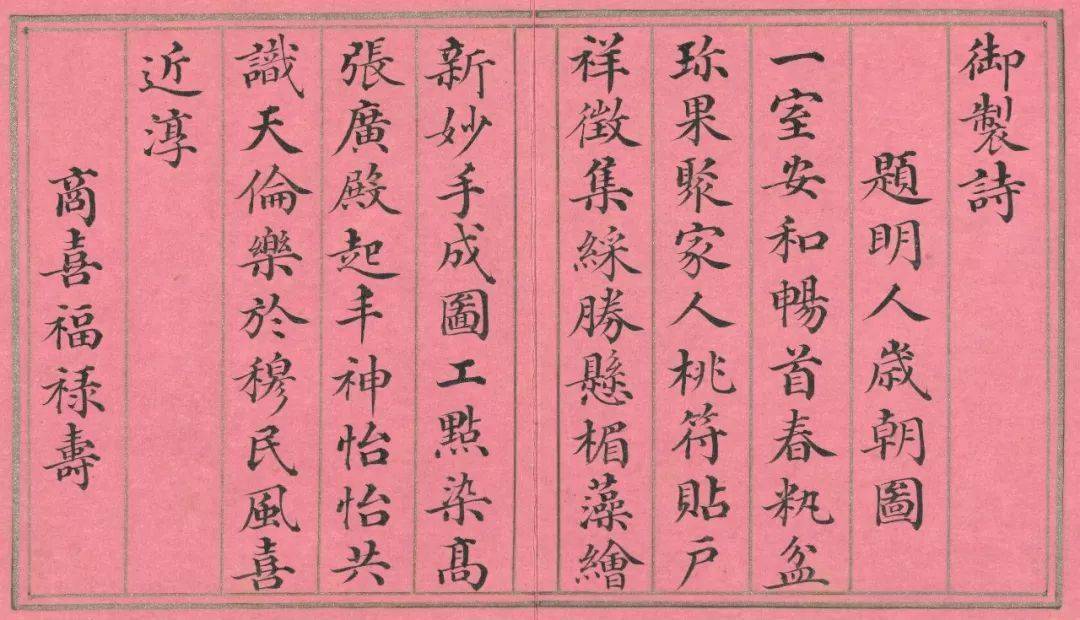 御製詩
題明人歳朝圖
一室安和暢首春籸盆
珎果聚家人桃符貼戶
祥徵集綵勝懸楣藻繪
新妙手成圖工點染髙
張廣殿起丰神怡怡共
識天倫樂於穆民風喜
近淳
商喜福祿壽